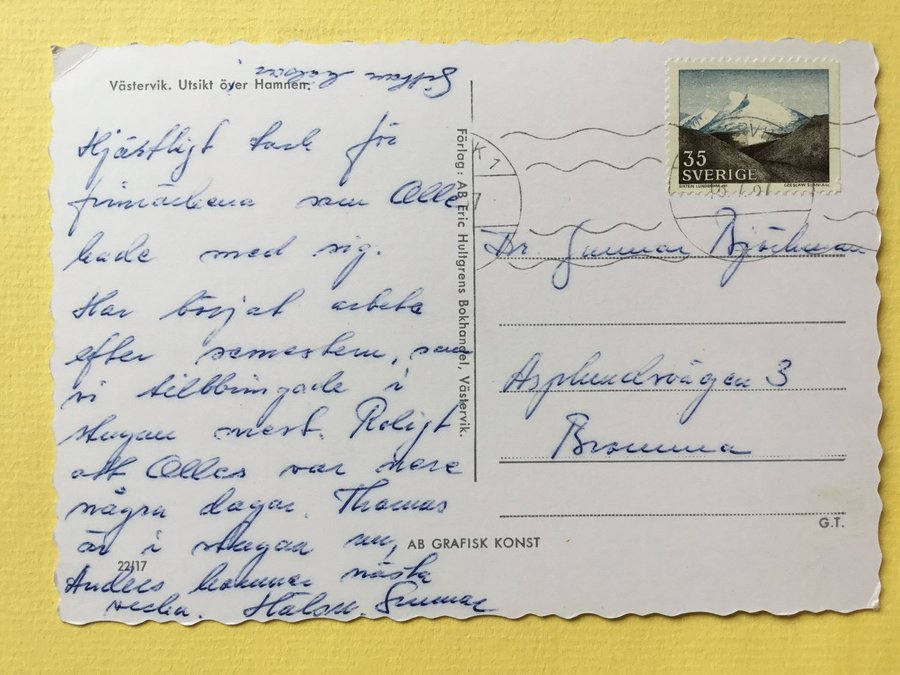 Västervik. Utsikt över Hamnen.
Hjärtligt tack för
frimärkena som Olle
hade med sig.
Har börjat arbeta
efter semestern, som
vi tillbringade i
stugan mest. Roligt
att Olles var nere
några dagar. Thomas
är i stugan nu,
Anders kommer nästa
vecka. Hälsn. Gunnar
22/17
Förlag: AB Eric Hultgrens Bokhandel, Västervik.
AB GRAFISK KONST
35
SVERIGE
CZESLAW SLANIA
Dr Gunnar Björkman
Asplundsvägen 3
Bromma
G.T.